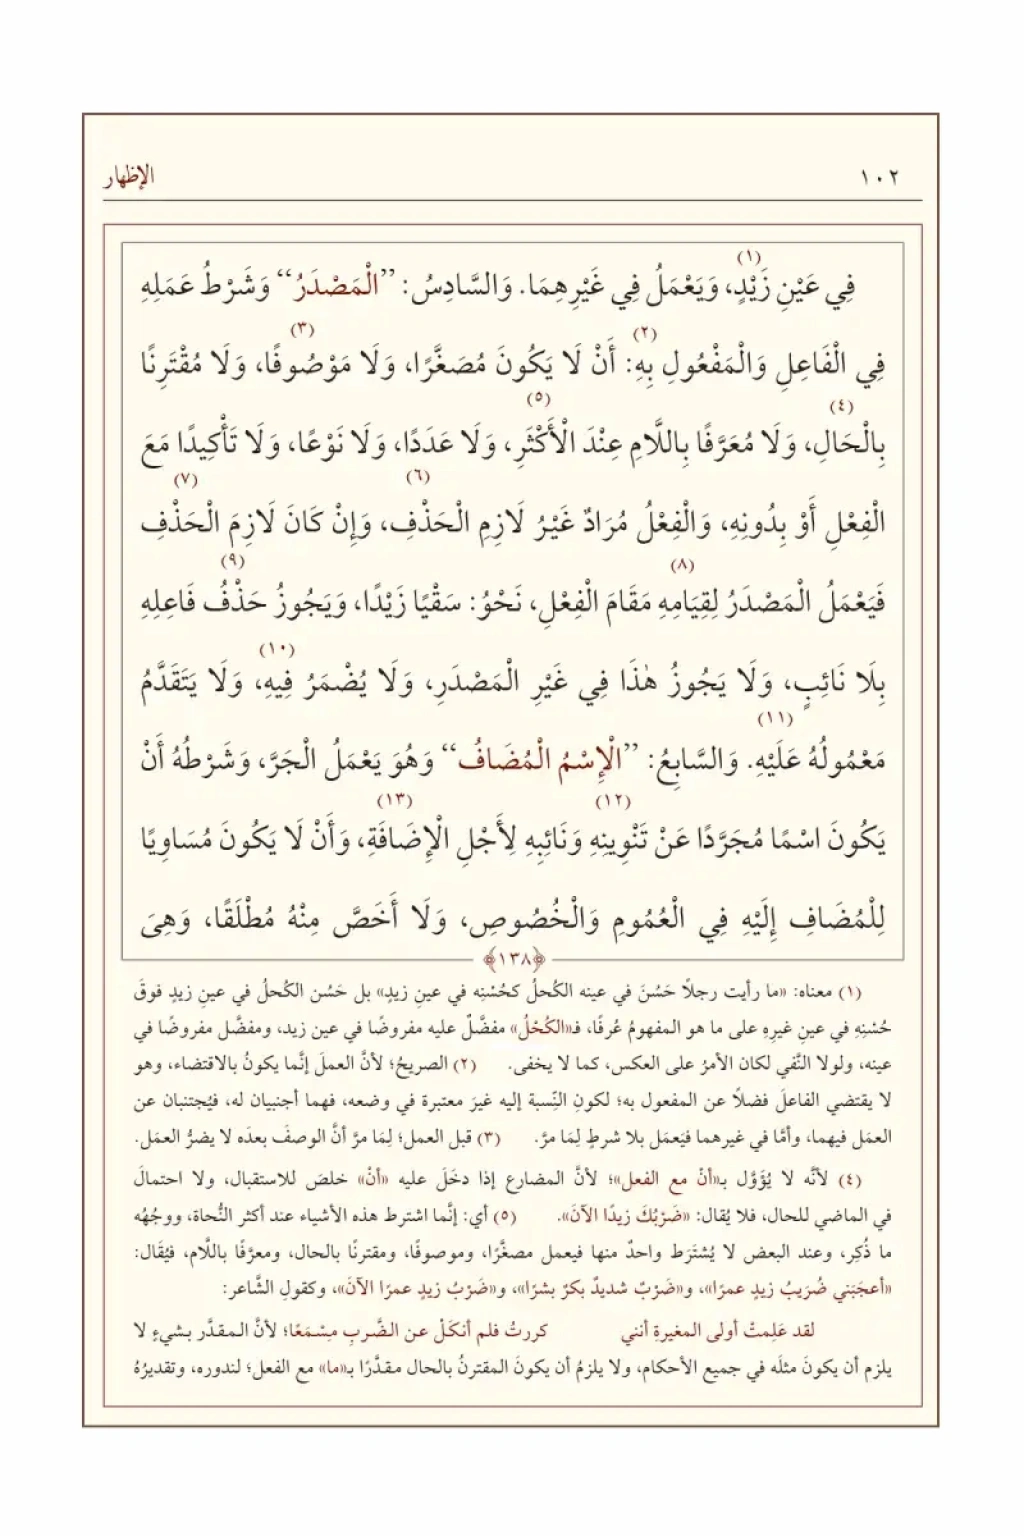 ١٠٢ الإظهار
فِي عَيْنِ زَيْدٍ(١)، وَيَعْمَلُ فِي غَيْرِهِمَا. وَالسَّادِسُ: ’’الْمَصْدَرُ‘‘ وَشَرْطُ عَمَلِهِ
فِي الْفَاعِلِ وَالْمَفْعُولِ بِهِ(٢): أَنْ لَا يَكُونَ مُصَغَّرًا، وَلَا مَوْصُوفًا(٣)، وَلَا مُقْتَرِنًا
بِالْحَالِ(٤)، وَلَا مُعَرَّفًا بِاللَّامِ عِنْدَ الْأَكْثَرِ(٥)، وَلَا عَدَدًا، وَلَا نَوْعًا، وَلَا تَأْكِيدًا مَعَ
الْفِعْلِ أَوْ بِدُونِهِ، وَالْفِعْلُ مُرَادٌ غَيْرُ لَازِمِ الْحَذْفِ(٦)، وَإِنْ كَانَ لَازِمَ الْحَذْفِ(٧)
فَيَعْمَلُ الْمَصْدَرُ لِقِيَامِهِ مَقَامَ الْفِعْلِ(٨)، نَحْوُ: سَقْيًا زَيْدًا، وَيَجُوزُ حَذْفُ(٩) فَاعِلِهِ
بِلَا نَائِبٍ، وَلَا يَجُوزُ هٰذَا فِي غَيْرِ الْمَصْدَرِ، وَلَا يُضْمَرُ فِيهِ(١٠)، وَلَا يَتَقَدَّمُ
مَعْمُولُهُ عَلَيْهِ(١١). وَالسَّابِعُ: ’’الْإِسْمُ الْمُضَافُ‘‘ وَهُوَ يَعْمَلُ الْجَرَّ، وَشَرْطُهُ أَنْ
يَكُونَ اسْمًا مُجَرَّدًا عَنْ تَنْوِينِهِ(١٢) وَنَائِبِهِ لِأَجْلِ الْإِضَافَةِ(١٣)، وَأَنْ لَا يَكُونَ مُسَاوِيًا
لِلْمُضَافِ إِلَيْهِ فِي الْعُمُومِ وَالْخُصُوصِ، وَلَا أَخَصَّ مِنْهُ مُطْلَقًا، وَهِىَ
﴿١٣٨﴾
(١) معناه: «ما رأيت رجلًا حَسُنَ في عينه الكُحلُ كحُسْنِه في عينِ زيدٍ» بل حَسُن الكحلُ في عينِ زيدٍ فوقَ
حُسْنِهِ في عينِ غيرِهِ على ما هو المفهومُ عُرفًا، فـ«الكُحْلُ» مفضَّلٌ عليه مفروضًا في عين زيد، ومفضَّل مفروضًا في
عينه، ولولا النَّفي لكان الأمرُ على العكس، كما لا يخفى. (٢) الصريحُ؛ لأنَّ العملَ إنَّما يكونُ بالاقتضاء، وهو
لا يقتضي الفاعلَ فضلًا عن المفعول به؛ لكونِ النِّسبة إليه غيرَ معتبرة في وضعه، فهما أجنبيان له، فيُجتنبان عن
العمَل فيهما، وأمَّا في غيرهما فيَعمَل بلا شرطٍ لِمَا مرَّ. (٣) قبل العمل؛ لِمَا مرَّ أنَّ الوصفَ بعدَه لا يضرُّ العمَل.
(٤) لأنَّه لا يُؤَوَّل بـ«أنْ مع الفعل»؛ لأنَّ المضارع إذا دخَلَ عليه «أنْ» خلصَ للاستقبال، ولا احتمالَ
في الماضي للحال، فلا يُقال: «ضَرْبُكَ زيدًا الآنَ». (٥) أي: إنَّما اشترط هذه الأشياء عند أكثر النُّحاة، ووجْهُه
ما ذُكِر، وعند البعض لا يُشتَرَط واحدٌ منها فيعمل مصغَّرًا، وموصوفًا، ومقترنًا بالحال، ومعرَّفًا باللَّام، فيُقَال:
«أعجَبَني ضُرَيبُ زيدٍ عمرًا»، و«ضَرْبٌ شديدٌ بكرٌ بشرًا»، و«ضَرْبُ زيدٍ عمرًا الآنَ»، وكقولِ الشَّاعر:
لقد عَلِمتْ أولى المغيرةِ أنني كررتُ فلم أنكَلْ عن الضَّربِ مِسْمَعًا؛ لأنَّ المقدَّر بشيءٍ لا
يلزم أن يكونَ مثلَه في جميع الأحكام، ولا يلزمُ أن يكونَ المقترنُ بالحال مقدَّرًا بـ«ما» مع الفعل؛ لندوره، وتقديرُهُ